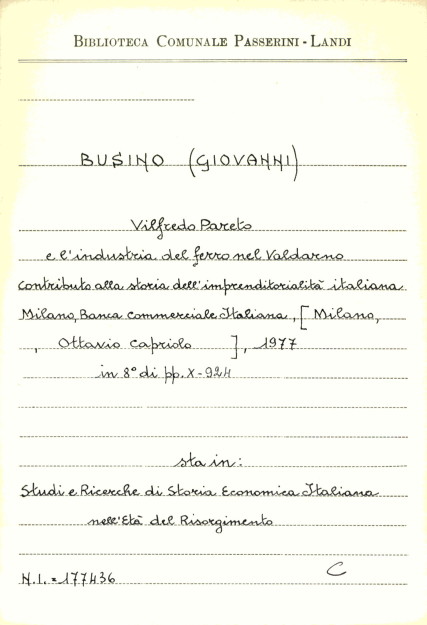 BIBLIOTECA COMUNALE PASSERINI - LANDI
BUSINO (GIOVANNI)
Vilfredo Pareto
e l'industria del ferro nel Valdarno
contributo alla storia dell'imprenditorialità italiana
Milano, Banca Commerciale Italiana, [Milano,
, Ottavio Capriolo ], 1977
in 8° di pp. X-924
sta in:
Studi e Ricerche di Storia Economica Italiana
nell'Età del Risorgimento
N.I. = 177436
C